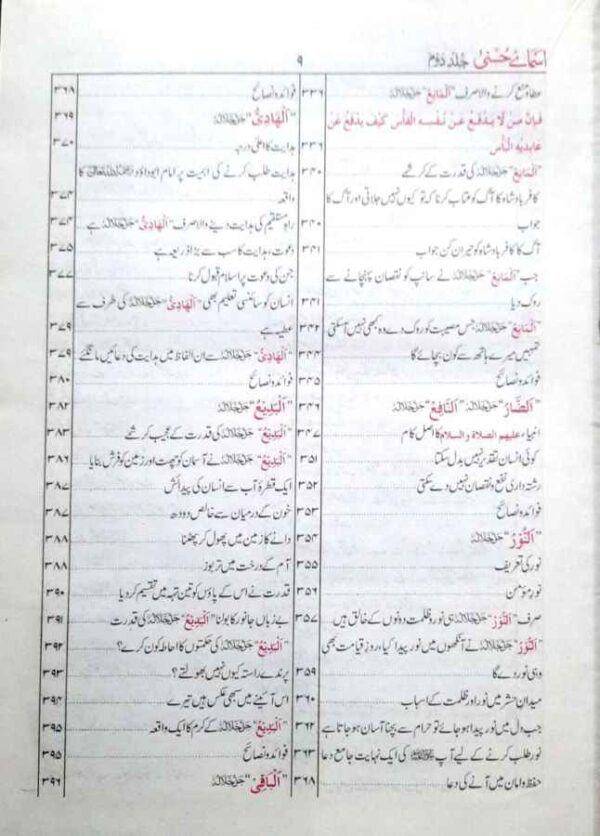 اسمائے حُسنیٰ جلد دوم
۹
عطاء و منع کرنے والا صرف ”اَلْمَانِعُ“ جَلَّ جَلَالُہٗ ۳۳۶
فَإِنَّ مَنْ لَا يَدْفَعُ عَنْ نَفْسِهِ الْفَأْسَ كَيْفَ يَدْفَعُ عَنْ
عَابِدِيهِ الْبَأْسَ ۳۳۶
”اَلْمَانِعُ“ جَلَّ جَلَالُہٗ کی قدرت کے کرشمے ۳۴۰
کافر بادشاہ کا آگ کو عتاب کرنا کہ تو کیوں نہیں جلاتی اور آگ کا
جواب ۳۴۰
آگ کا کافر بادشاہ کو حیران کن جواب ۳۴۱
جب ”اَلْمَانِعُ“ جَلَّ جَلَالُہٗ نے سانپ کو نقصان پہنچانے سے
روک دیا ۳۴۱
”اَلْمَانِعُ“ جَلَّ جَلَالُہٗ جس مصیبت کو روک دے وہ کبھی نہیں آسکتی ۳۴۲
تمہیں میرے ہاتھ سے کون بچائے گا ۳۴۴
فوائد و نصائح ۳۴۵
”اَلضَّارُّ“ جَلَّ جَلَالُہٗ ”اَلنَّافِعُ“ جَلَّ جَلَالُہٗ ۳۴۶
انبیاء علیہم الصلاۃ والسلام کا اصل کام ۳۴۷
کوئی انسان تقدیر نہیں بدل سکتا ۳۵۱
رشتہ داری نفع و نقصان نہیں دے سکتی ۳۵۲
فوائد و نصائح ۳۵۳
”اَلنُّوْرُ“ جَلَّ جَلَالُہٗ ۳۵۴
نور کی تعریف ۳۵۵
نورِ مؤمن ۳۵۶
صرف ”اَلنُّوْرُ“ جَلَّ جَلَالُہٗ ہی نور و ظلمت دونوں کے خالق ہیں ۳۵۷
”اَلنُّوْرُ“ جَلَّ جَلَالُہٗ نے آنکھوں میں نور پیدا کیا، روزِ قیامت بھی
وہی نور دے گا ۳۵۹
میدانِ حشر میں نور اور ظلمت کے اسباب ۳۶۰
جب دل میں نور پیدا ہو جائے تو حرام سے بچنا آسان ہو جاتا ہے ۳۶۲
نور طلب کرنے کے لیے آپ ﷺ کی ایک نہایت جامع دعا ۳۶۳
حفظ و امان میں آنے کی دعا ۳۶۸
فوائد و نصائح ۳۶۸
”اَلْهَادِیُ“ جَلَّ جَلَالُہٗ ۳۶۹
ہدایت کا اعلیٰ درجہ ۳۷۰
ہدایت طلب کرنے کی اہمیت پر امام ابوداؤد کا
واقعہ ۳۷۳
راہِ مستقیم کی ہدایت دینے والا صرف ”اَلْهَادِیُ“ جَلَّ جَلَالُہٗ ہے ۳۷۴
دعوت، ہدایت کا سب سے بڑا ذریعہ ہے ۳۷۵
جن کی دعوت پر اسلام قبول کرنا ۳۷۷
انسان کو سائنسی تعلیم بھی ”اَلْهَادِیُ“ جَلَّ جَلَالُہٗ کی طرف سے
عطیہ ہے ۳۷۹
”اَلْهَادِیُ“ جَلَّ جَلَالُہٗ سے ان الفاظ میں ہدایت کی دعائیں مانگئے ۳۷۹
فوائد و نصائح ۳۸۰
”اَلْبَدِیْعُ“ جَلَّ جَلَالُہٗ ۳۸۲
”اَلْبَدِیْعُ“ جَلَّ جَلَالُہٗ کی قدرت کے عجیب کرشمے ۳۸۳
”اَلْبَدِیْعُ“ جَلَّ جَلَالُہٗ نے آسمان کو چھت اور زمین کو فرش بنایا ۳۸۶
ایک قطرۂ آب سے انسان کی پیدائش ۳۸۷
خون کے درمیان سے خالص دودھ ۳۸۷
دانے کا زمین میں پھول کر پھٹنا ۳۸۸
آم کے درخت میں تربوز ۳۸۸
قدرت نے اس کے پاؤں کو تین تہہ میں تقسیم کر دیا ۳۹۰
بے زباں جانور کا بولنا ”اَلْبَدِیْعُ“ جَلَّ جَلَالُہٗ کی قدرت ۳۹۱
”اَلْبَدِیْعُ“ جَلَّ جَلَالُہٗ کی حکمتوں کا احاطہ کون کرے؟ ۳۹۲
پرندے راستہ کیوں نہیں بھولتے؟ ۳۹۳
اس آئینے میں سبھی عکس ہیں تیرے ۳۹۴
”اَلْبَدِیْعُ“ جَلَّ جَلَالُہٗ کے کرم کا ایک واقعہ ۳۹۵
فوائد و نصائح ۳۹۵
”اَلْبَاقِیْ“ جَلَّ جَلَالُہٗ ۳۹۶